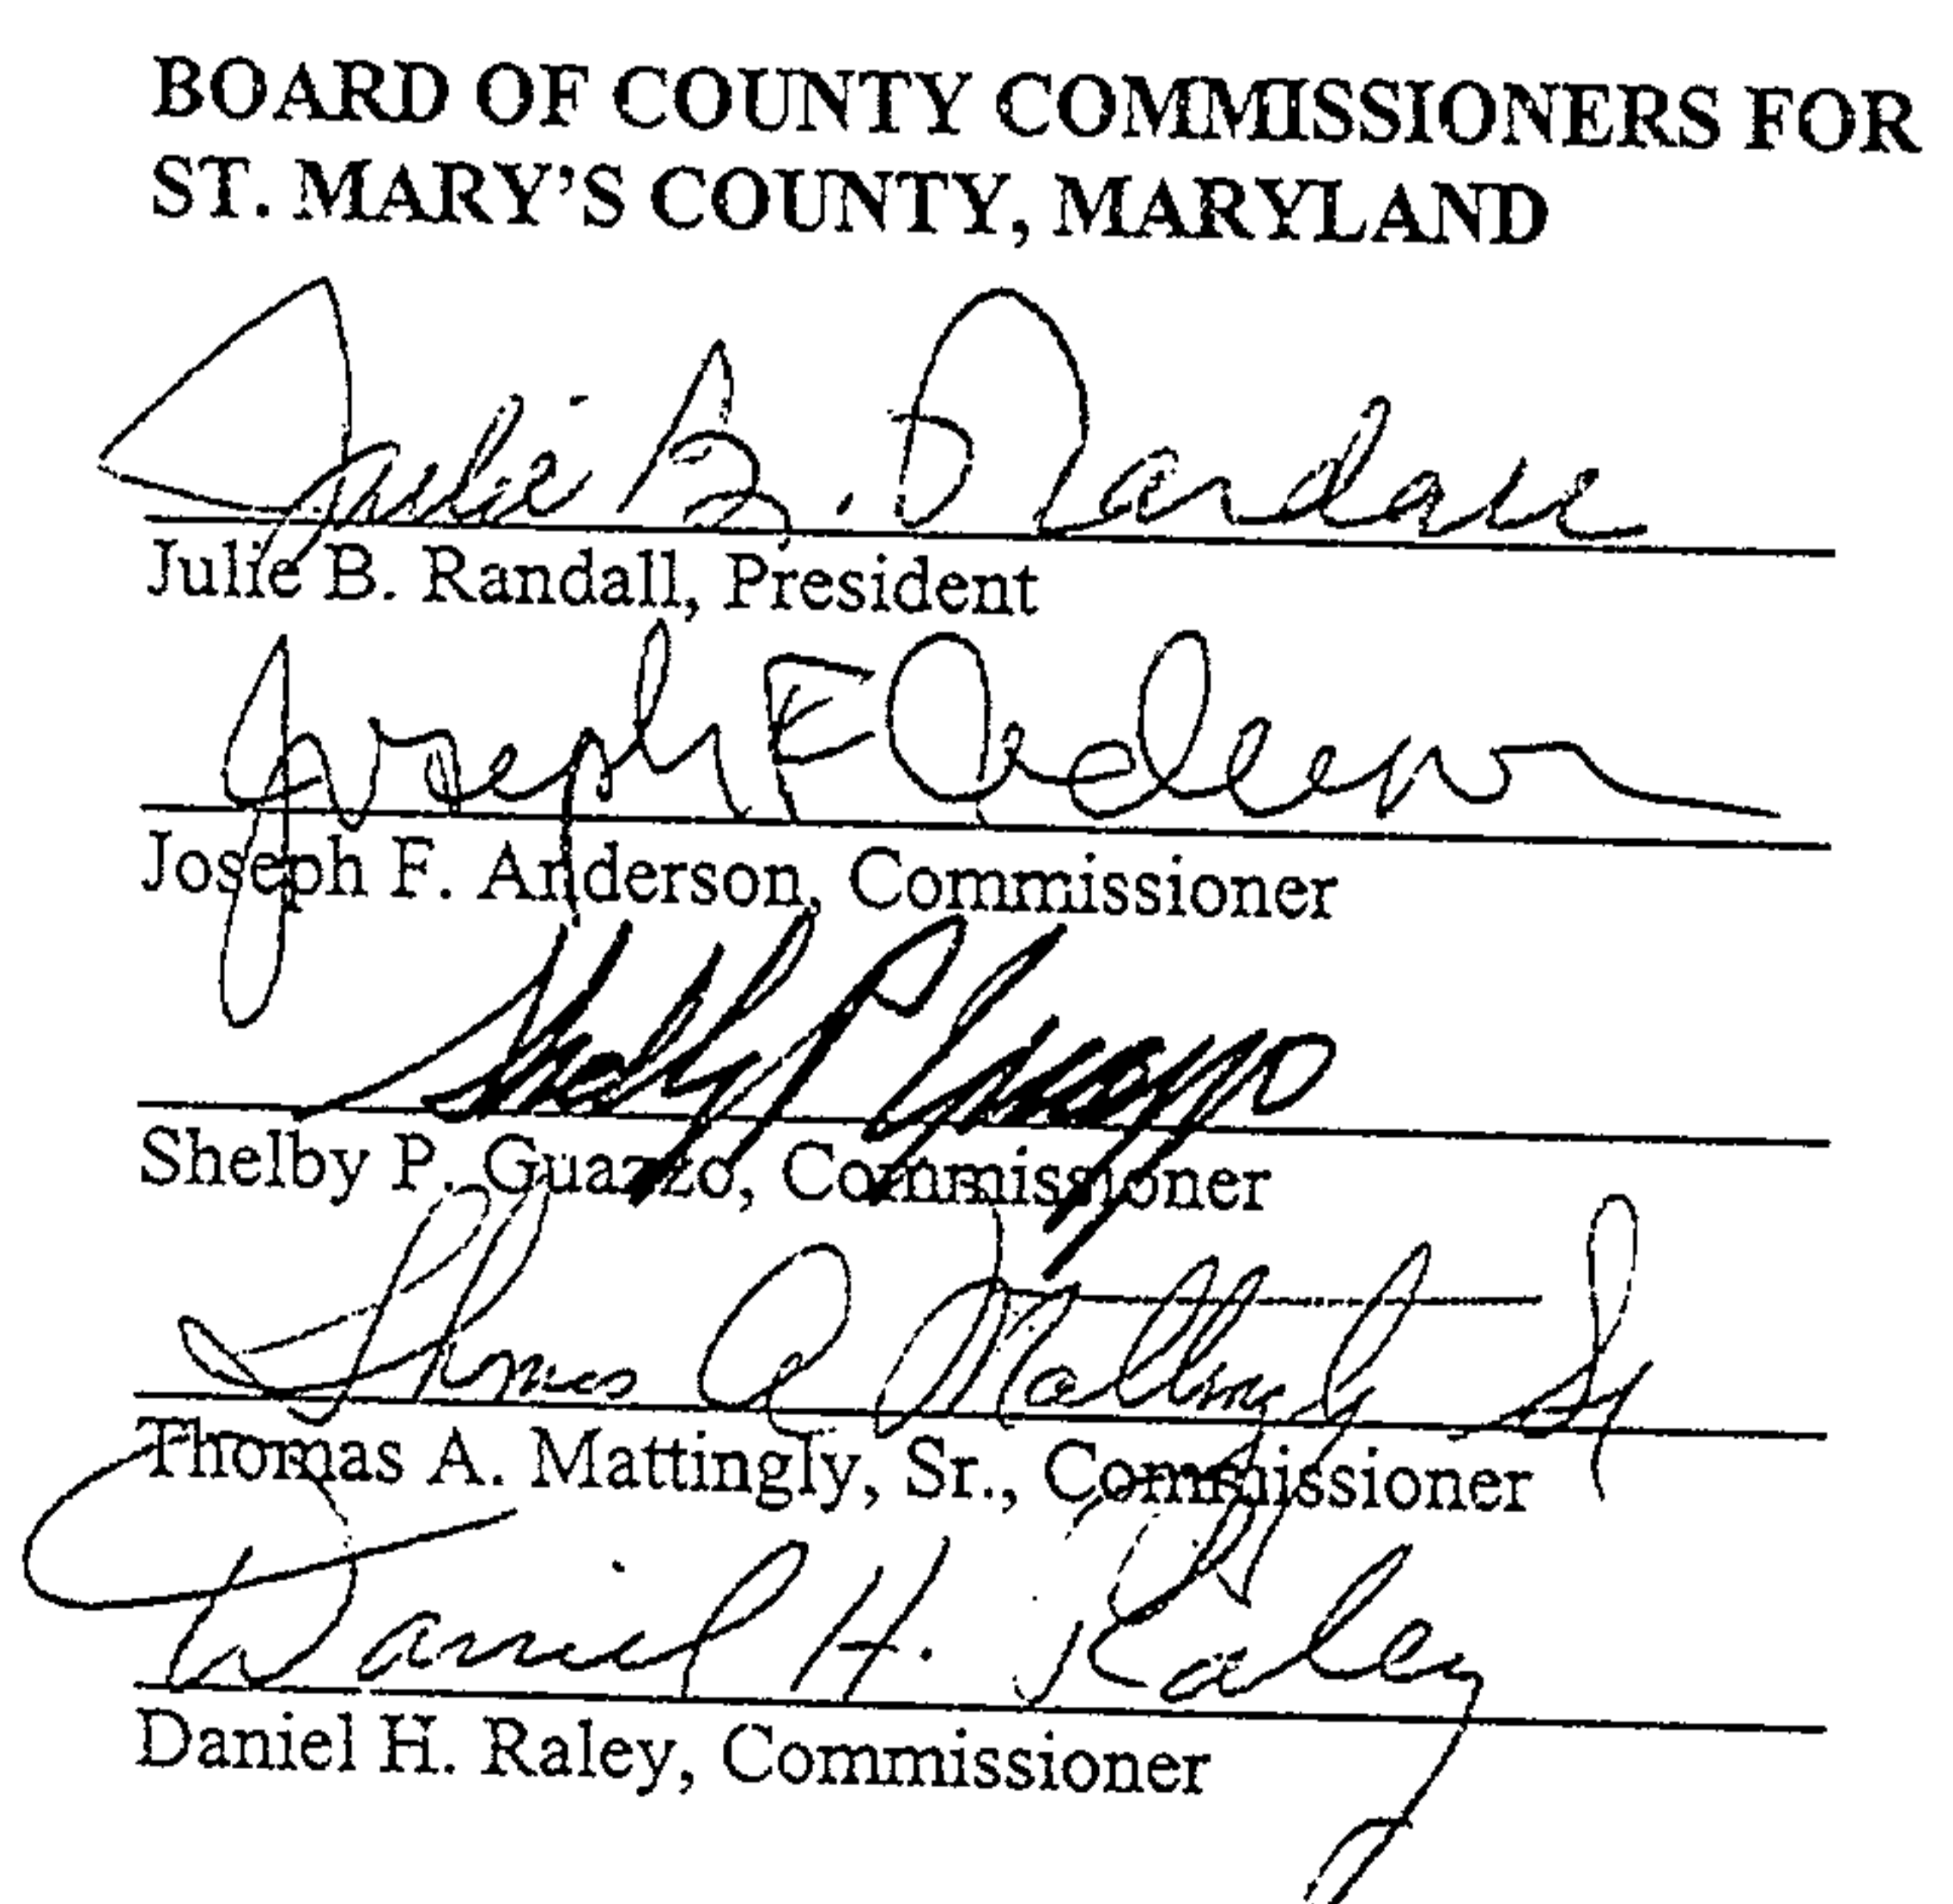 BOARD OF COUNTY COMMISSIONERS FOR
ST. MARY'S COUNTY, MARYLAND
Julie B. Randall
Julie B. Randall, President
Joseph F Anderson
Joseph F. Anderson, Commissioner
Shelby P Guazzo
Shelby P. Guazzo, Commissioner
Thomas A Mattingly Sr
Thomas A. Mattingly, Sr., Commissioner
Daniel H. Raley
Daniel H. Raley, Commissioner